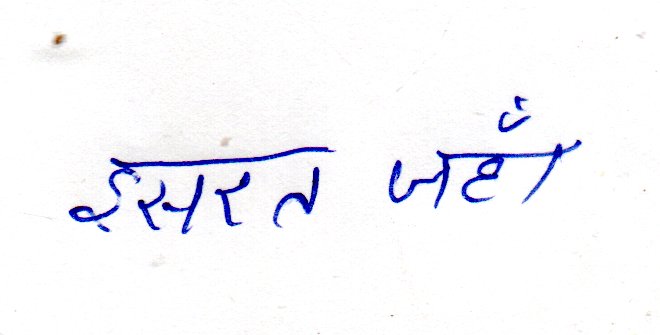 इसरत जहाँ